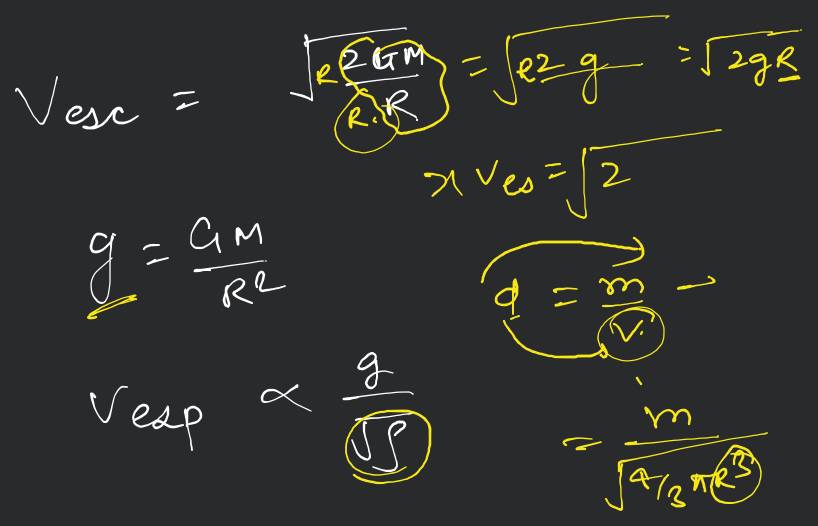 Vesc = √(R 2GM / R.R) = √(R2 g) = √(2gR)
x Ves = √2
g = GM / R²
d = m / V. →
Vesp ∝ g / √ρ
= m / √(4/3 π R³)